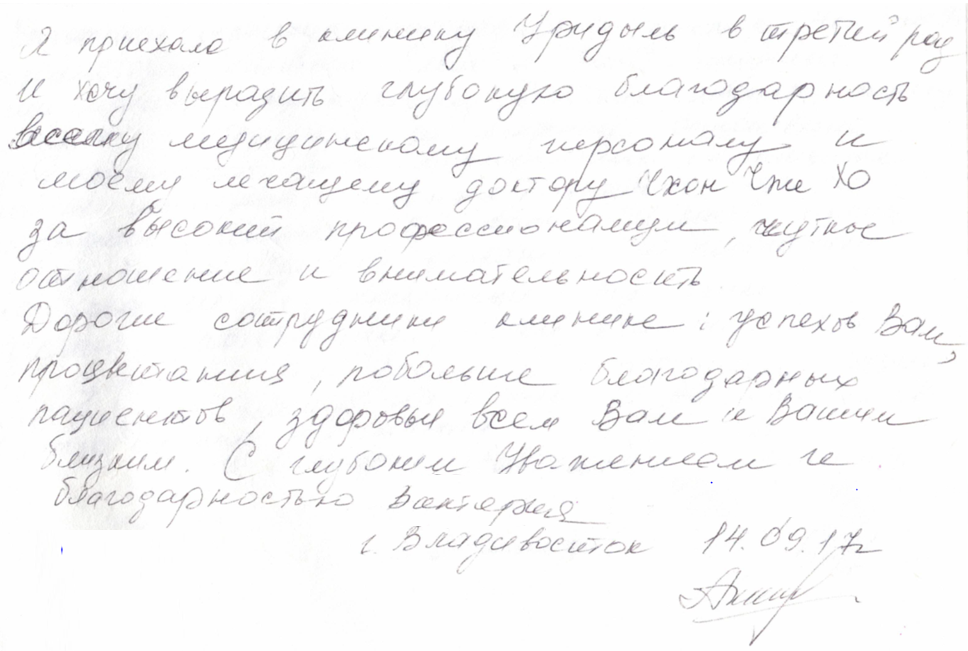 Я приехала в клинику Уридыль в третий раз
И хочу выразить глубокую благодарность
всему медицинскому персоналу и
моему лечащему доктору Чхон Чже Хо
за высокий профессионализм, чуткое
отношение и внимательность
Дорогие сотрудники клиники: успехов Вам,
процветания, побольше благодарных
пациентов, здоровья всем Вам и Вашим
близким. С глубоким Уважением и
благодарностью
г. Владивосток 14.09.17г